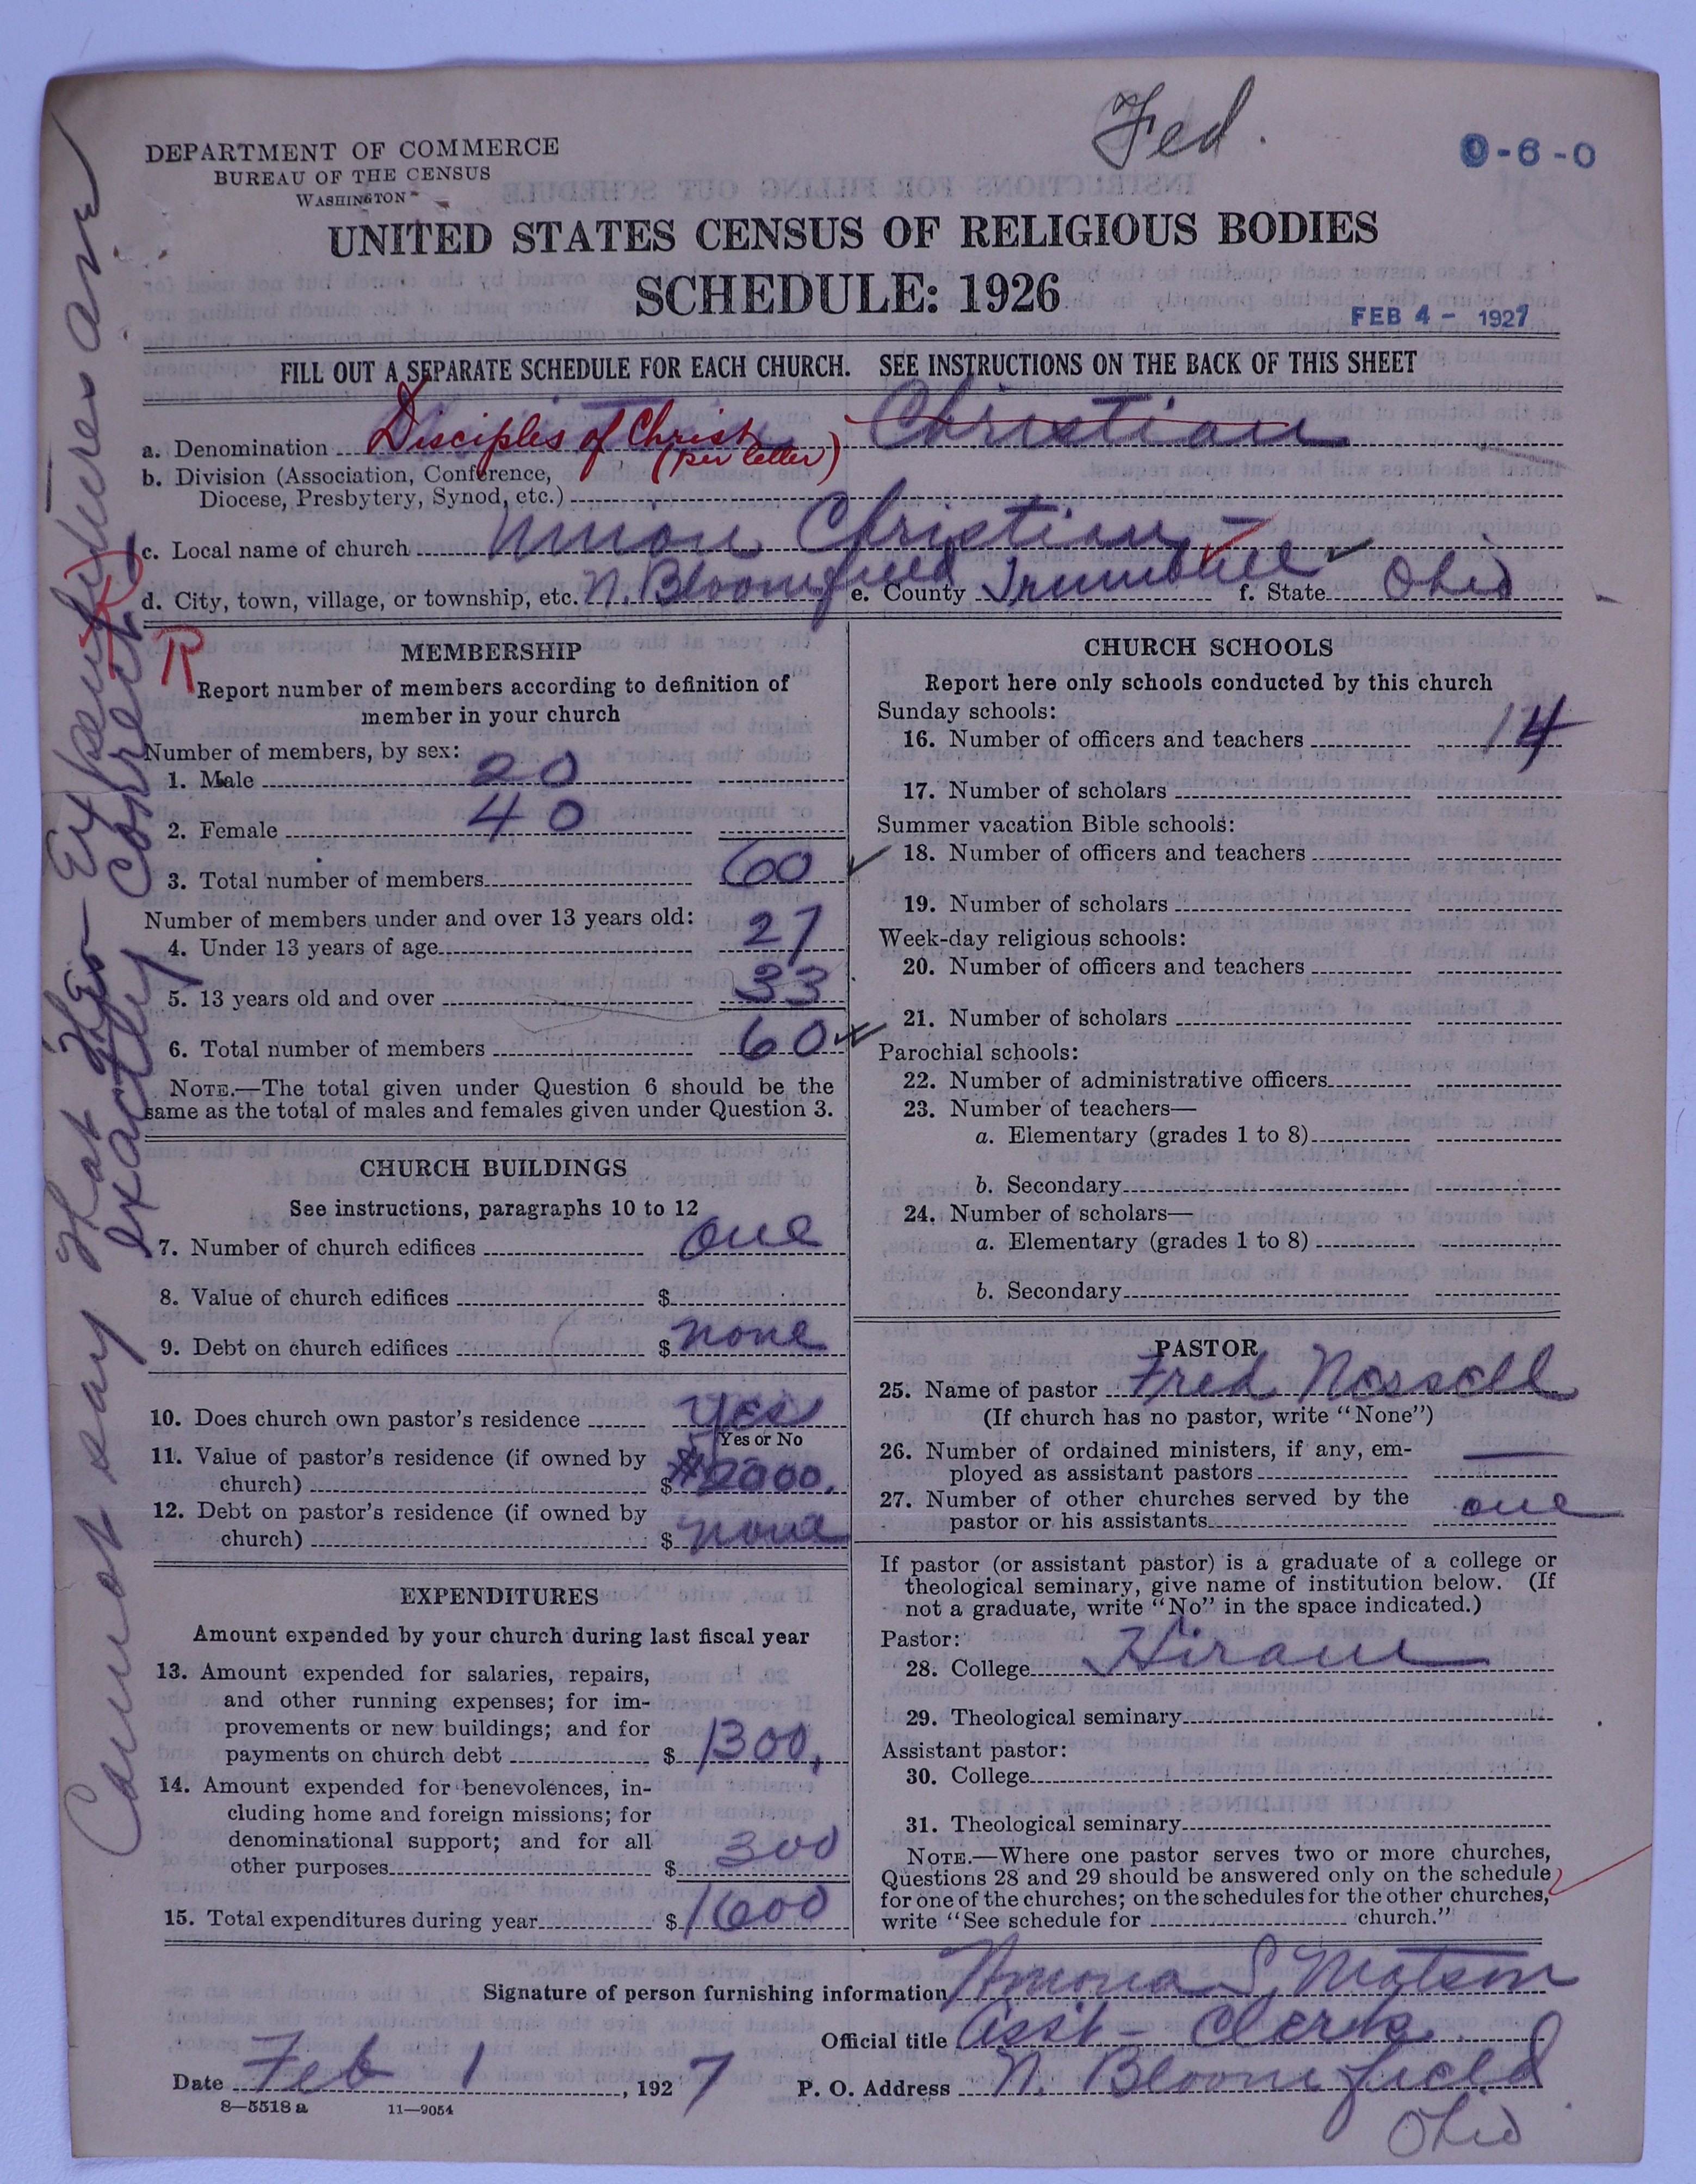 Fed.
0-6-0
DEPARTMENT OF COMMERCE
BUREAU OF THE CENSUS
WASHINGTON
UNITED STATES CENSUS OF RELIGIOUS BODIES
SCHEDULE: 1926
FEB 4 - 1927
FILL OUT A SEPARATE SCHEDULE FOR EACH CHURCH. SEE INSTRUCTIONS ON THE BACK OF THIS SHEET
a. Denomination Disciples of Christ (per letter) Christian
b. Division (Association, Conference,
Diocese, Presbytery, Synod, etc.)
c. Local name of church Union Christian
d. City, town, village, or township, etc. N. Bloomfield e. County Trumbull f. State Ohio
R
R
MEMBERSHIP
Report number of members according to definition of
member in your church
Number of members, by sex:
1. Male 20
2. Female 40
3. Total number of members 60
Number of members under and over 13 years old:
4. Under 13 years of age 27
5. 13 years old and over 33
6. Total number of members 60
NOTE.—The total given under Question 6 should be the
same as the total of males and females given under Question 3.
CHURCH BUILDINGS
See instructions, paragraphs 10 to 12
7. Number of church edifices one
8. Value of church edifices $
9. Debt on church edifices $ none
10. Does church own pastor's residence Yes
Yes or No
11. Value of pastor's residence (if owned by
church) $ $2000.
12. Debt on pastor's residence (if owned by
church) $ none
EXPENDITURES
Amount expended by your church during last fiscal year
13. Amount expended for salaries, repairs,
and other running expenses; for im-
provements or new buildings; and for
payments on church debt $ 1300.
14. Amount expended for benevolences, in-
cluding home and foreign missions; for
denominational support; and for all
other purposes $ 300
15. Total expenditures during year $ 1600
CHURCH SCHOOLS
Report here only schools conducted by this church
Sunday schools:
16. Number of officers and teachers 14
17. Number of scholars
Summer vacation Bible schools:
18. Number of officers and teachers
19. Number of scholars
Week-day religious schools:
20. Number of officers and teachers
21. Number of scholars
Parochial schools:
22. Number of administrative officers
23. Number of teachers—
a. Elementary (grades 1 to 8)
b. Secondary
24. Number of scholars—
a. Elementary (grades 1 to 8)
b. Secondary
PASTOR
25. Name of pastor Fred Nossell
(If church has no pastor, write "None")
26. Number of ordained ministers, if any, em-
ployed as assistant pastors —
27. Number of other churches served by the
pastor or his assistants one
If pastor (or assistant pastor) is a graduate of a college or
theological seminary, give name of institution below. (If
not a graduate, write "No" in the space indicated.)
Pastor:
28. College Hiram
29. Theological seminary
Assistant pastor:
30. College
31. Theological seminary
NOTE.—Where one pastor serves two or more churches,
Questions 28 and 29 should be answered only on the schedule
for one of the churches; on the schedules for the other churches,
write "See schedule for church."
Signature of person furnishing information S. Matson
Official title Asst- Clerk
Date Feb 1, 1927 P. O. Address N. Bloomfield
Ohio
8—5518 a 11—9054
Cannot say that the Expenditures are
exactly correct